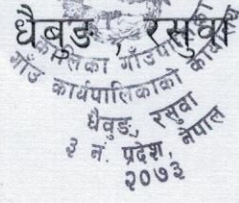 धैबुङ , रसुवा
कालिका गाँउपालिका
गाँउ कार्यपालिकाको कार्यालय
धैबुङ, रसुवा
३ नं. प्रदेश, नेपाल
२०७३